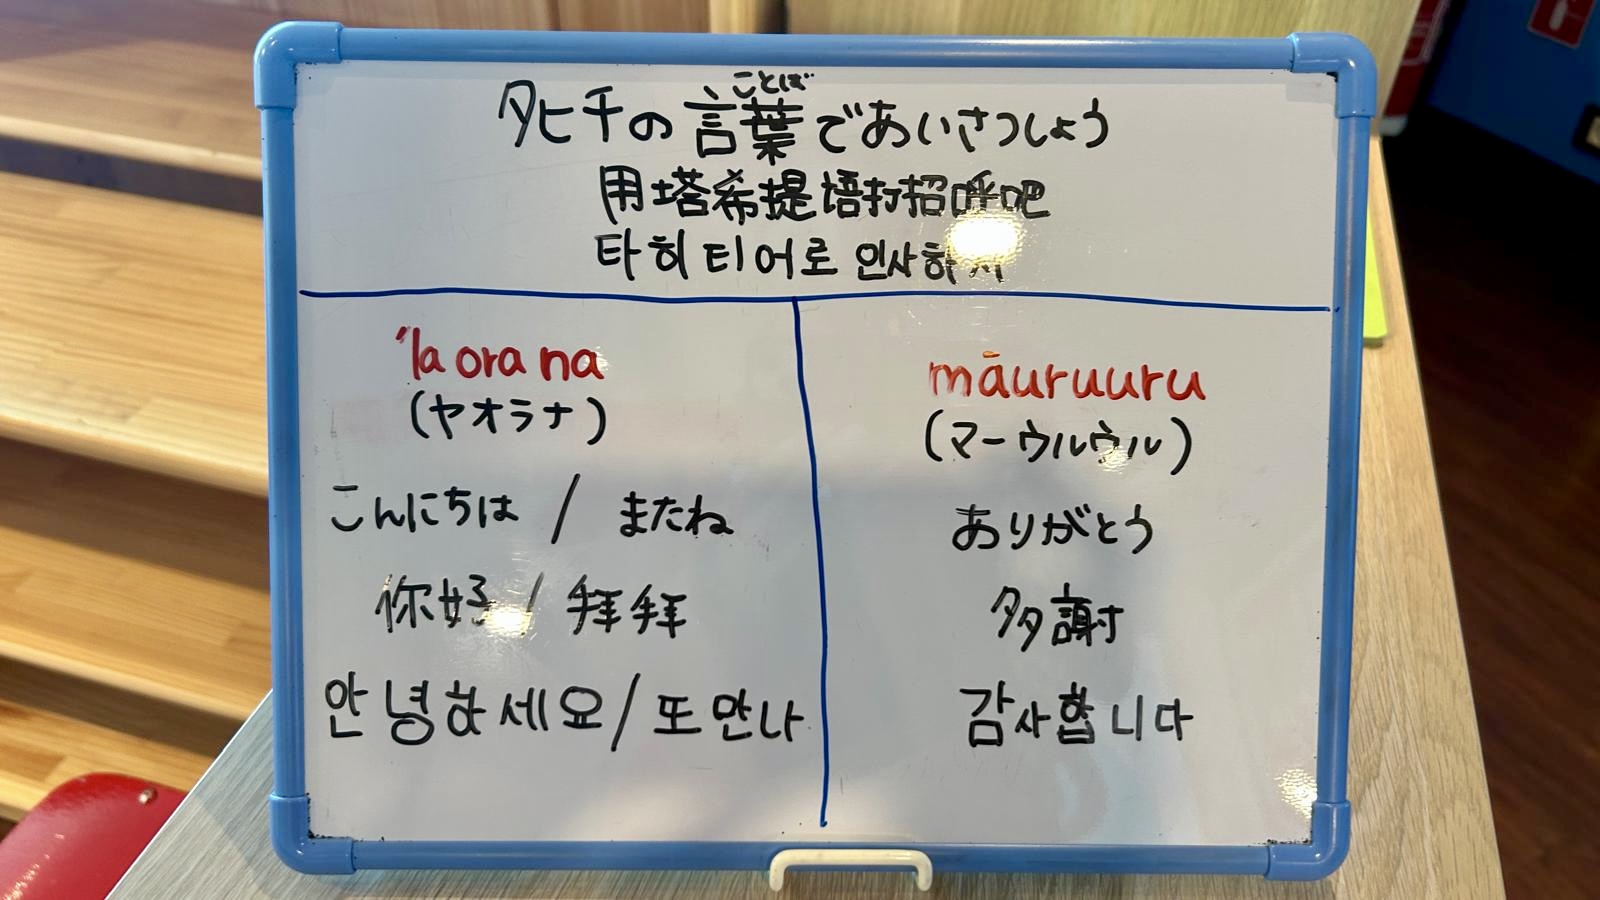 ことば
タヒチの言葉であいさつしょう
用塔希提语打招呼吧
타히티어로 인사하자
'Ia ora na
(ヤオラナ)
こんにちは / またね
你好 / 拜拜
안녕하세요 / 또 만나
māuruuru
(マーウルウル)
ありがとう
多謝
감사합니다